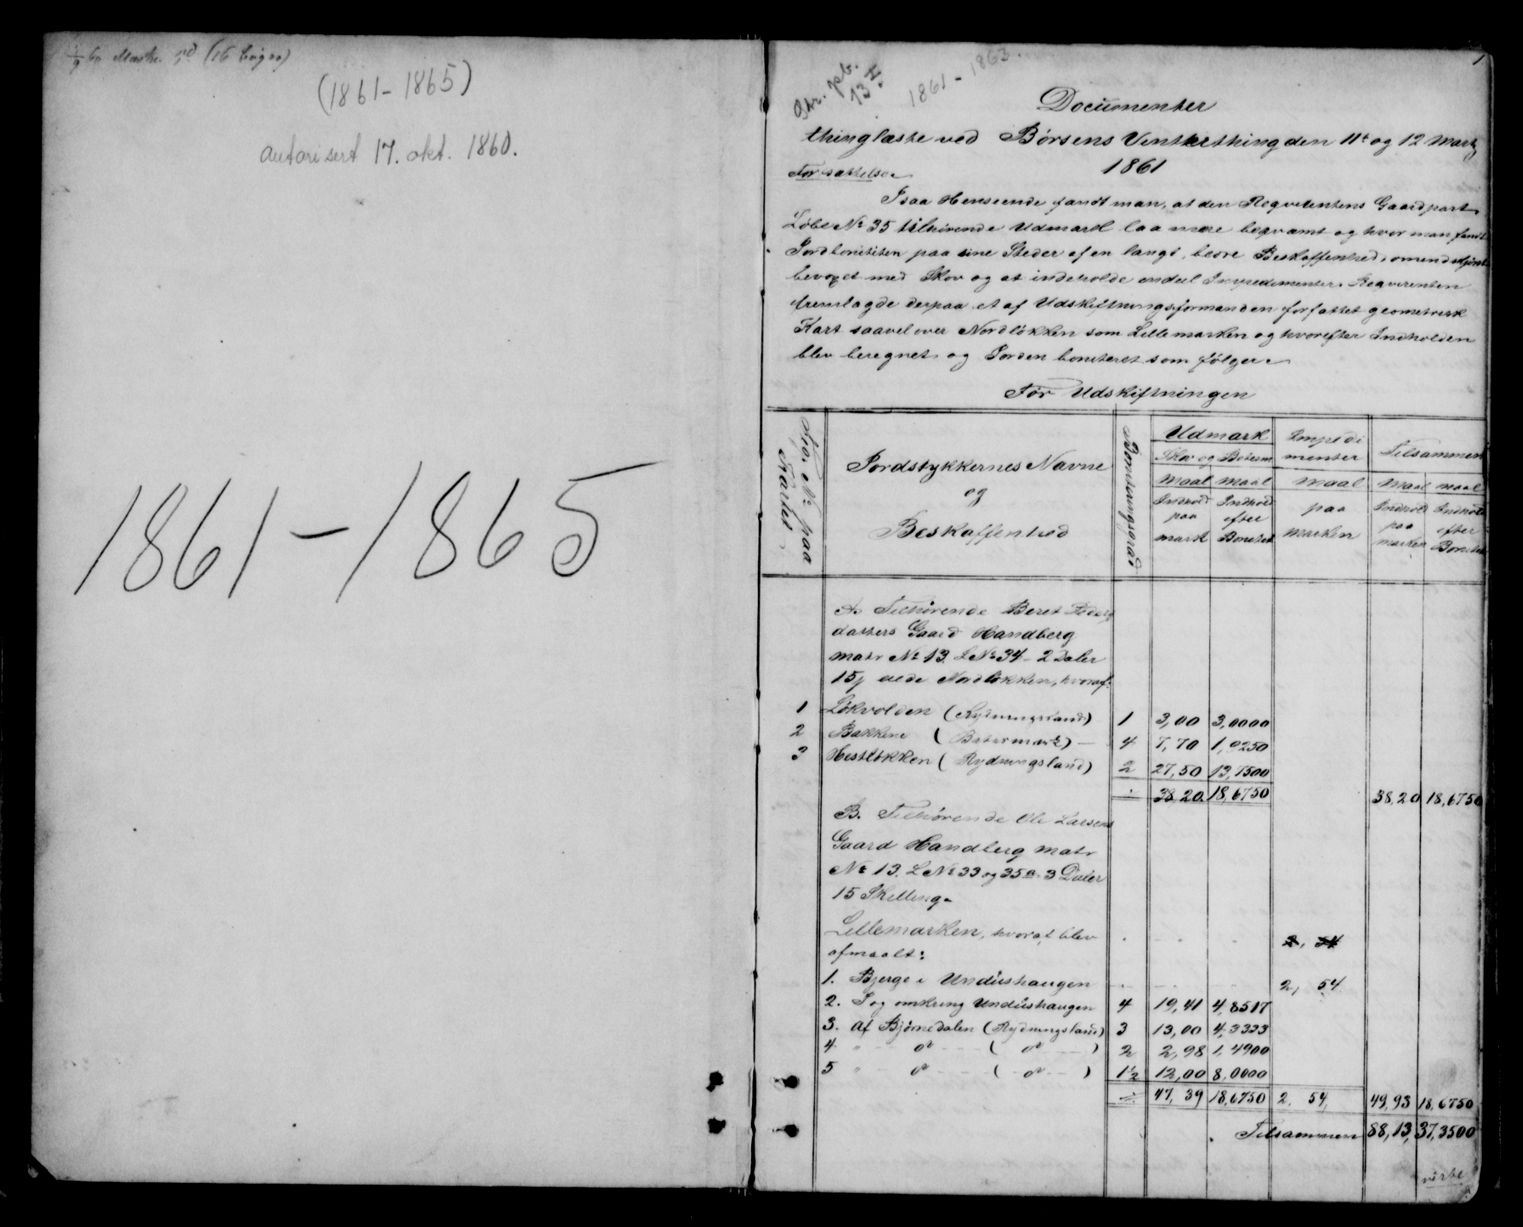 (16 bøger)
(1861-1865)
autorisert 17. okt. 1860.
1861-1865
1
Gr. pb. 13 I.
1861-1863.
Documenter
thinglæste ved Børsens Vinterthing den 11t og 12 Marts
1861
Forsættelse
I saa Henseende fandt man, at den Reqvirentens Gaardpart
Løbe No 35 tilhørende Udmark laa mere beqvemt og hvor man fandt
Jordboniteten paa sine Steder af en langt bedre Beskaffenhed, omendskjønt
bevoxet med Skov og at indeholde endeel Impedimenter. Reqvirenten
fremlagde derpaa et af Udskiftningsformanden forfattet geometrisk
Kart saavel over Nordløkken som Lillemarken og hvorefter Indholden
blev beregnet og Jorden boniteret som følger.
Før Udskiftningen
Fig. No paa Kartet
Jordstykkernes Navne
og
Beskaffenhed
Boniteringsgrad
Udmark
Skov og Beteen
maal Indhold paa mark
maal Indhold efter Bonitet
Impedimenter
maal paa Marken
Tilsammen
maal Indhold paa marken
maal Indhold efter Bonitet
A. Tilhørende Beret Peders
datters Gaard Handberg
matr No 13. L No 34 - 2 Daler
15 β nede Nordløkken, hvoraf:
1 Løkvolden (Rydningsland) 1 3,00 3,0000
2 Bakkene ( ) - 4 7,70 1,9250
3 Hestløkken (Rydningsland) 2 27,50 13,7500
38,20 18,6750 38,20 18,6750
B. Tilhørende Ole Larsens
Gaard Handberg Matr
No 13. L No 33 og 35a. 3 Daler
15 Skilling.
Lillemarken, hvoraf blev
2, 54
afmaalt:
1. Bjerge i Undushaugen 2, 54
2. I og omkring Undushaugen 4 19,41 4,8517
3. Af Bjørnedalen (Rydningsland) 3 13,00 4,3333
4. " - do - ( do - ) 2 2,98 1,4900
5 " - do - ( do - ) 1½ 12,00 8,0000
47,39 18,6750 2, 54, 49,93 18,6750
Tilsammen 88,13, 37,3500